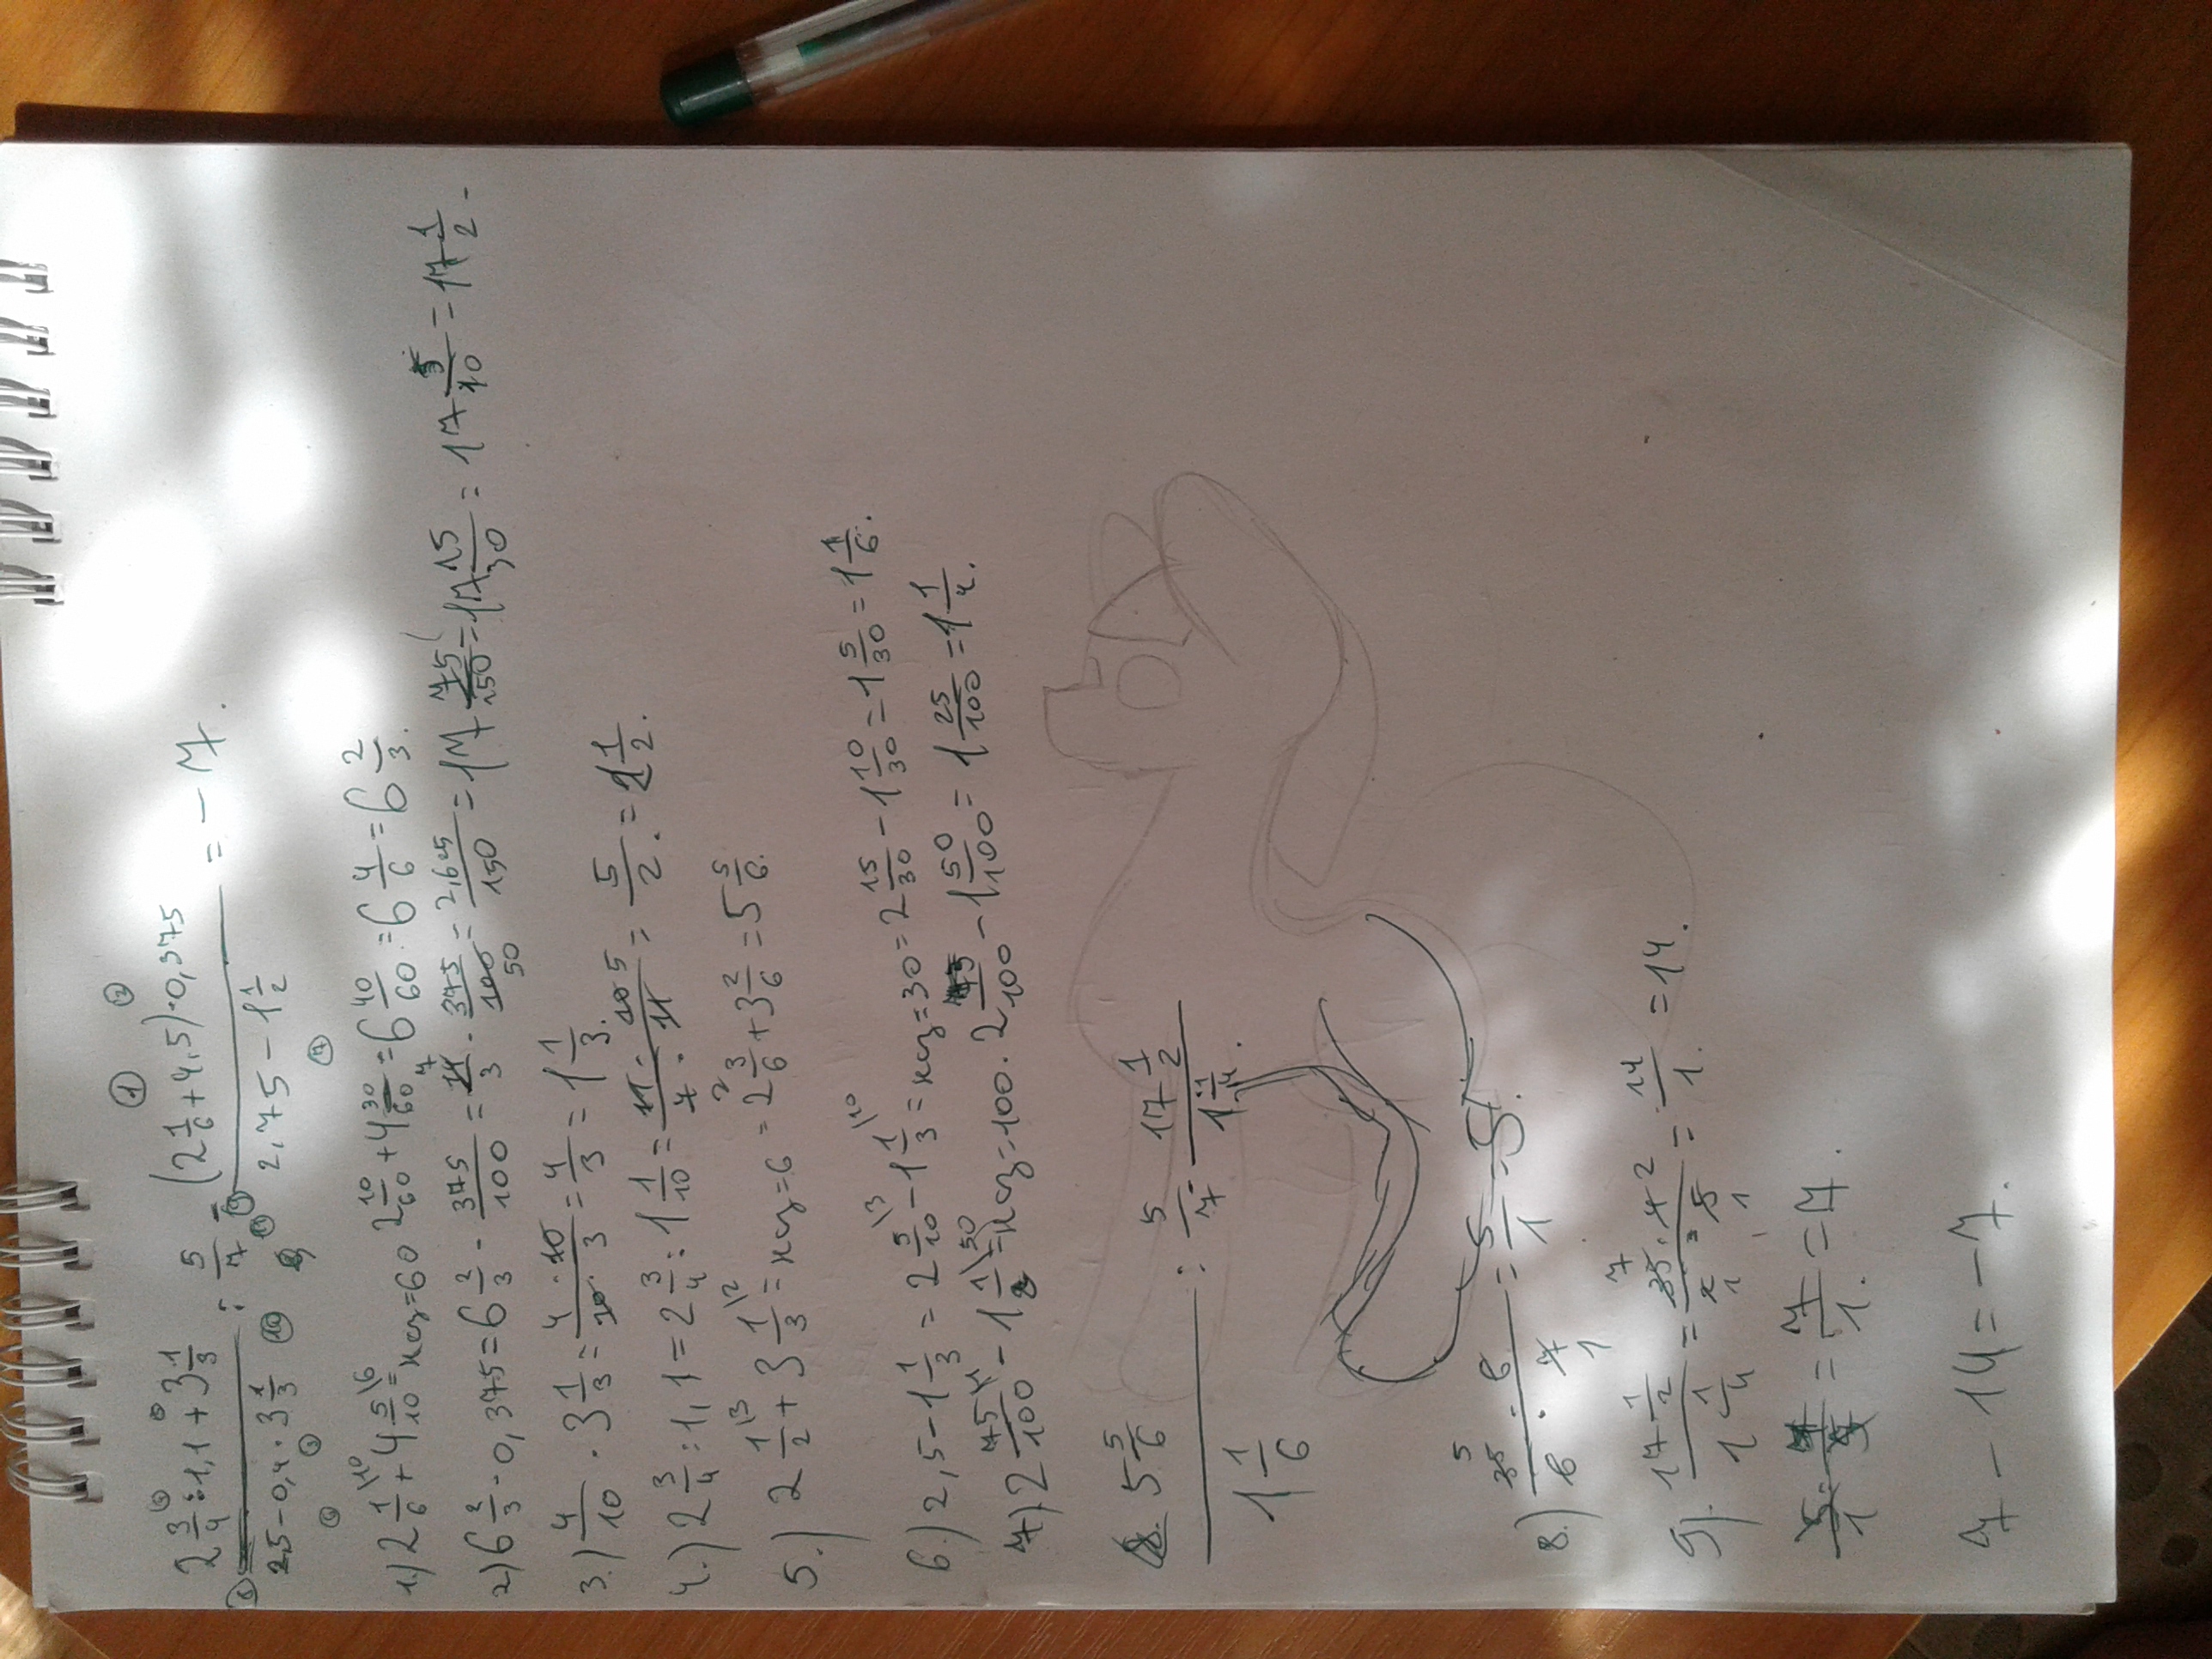 2 3/4 : 1,1 + 3 1/3 / 2,5 - 0,4 · 3 1/3 : 5/7 - (2 1/6 + 4,5) · 0,375 / 2,75 - 1 1/2 = - 7.
1.) 2 1/6 + 4 5/10 = хоз = 60 2 10/60 + 4 30/60 = 6 40/60 = 6 4/6 = 6 2/3.
2) 6 2/3 · 0,375 = 6 2/3 · 375/100 = 7 · 375/50 = 2,625/150 = 17 75/150 = 17 15/30 = 17 5/10 = 17 1/2.
3.) 4/10 · 3 1/3 = 4 · 10/10 · 3 = 4/3 = 1 1/3.
4.) 2 3/4 : 1,1 = 2 3/4 : 1 1/10 = 11 · 10 5/4 2 · 11 = 5/2 = 2 1/2.
5.) 2 1/2 + 3 1/3 = хоз = 6 = 2 3/6 + 3 2/6 = 5 5/6.
6.) 2,5 - 1 1/3 = 2 5/10 - 1 1/3 = хоз = 30 = 2 15/30 - 1 10/30 = 1 5/30 = 1 1/6.
7.) 2 75/100 - 1 1/2 = хоз = 100. 2 75/100 - 1 50/100 = 1 25/100 = 1 1/4.
5 5/6 / 1 1/6 : 5/7 · 17 1/2 / 1 1/4.
8.) 35 5 · 6/6 · 7 1 = 5/1 = 5.
9). 17 1/2 / 1 1/4 = 35 7 · 4 2/2 1 · 5 1 = 14/1 = 14.
= 7/1 = 7.
7 - 14 = - 7.